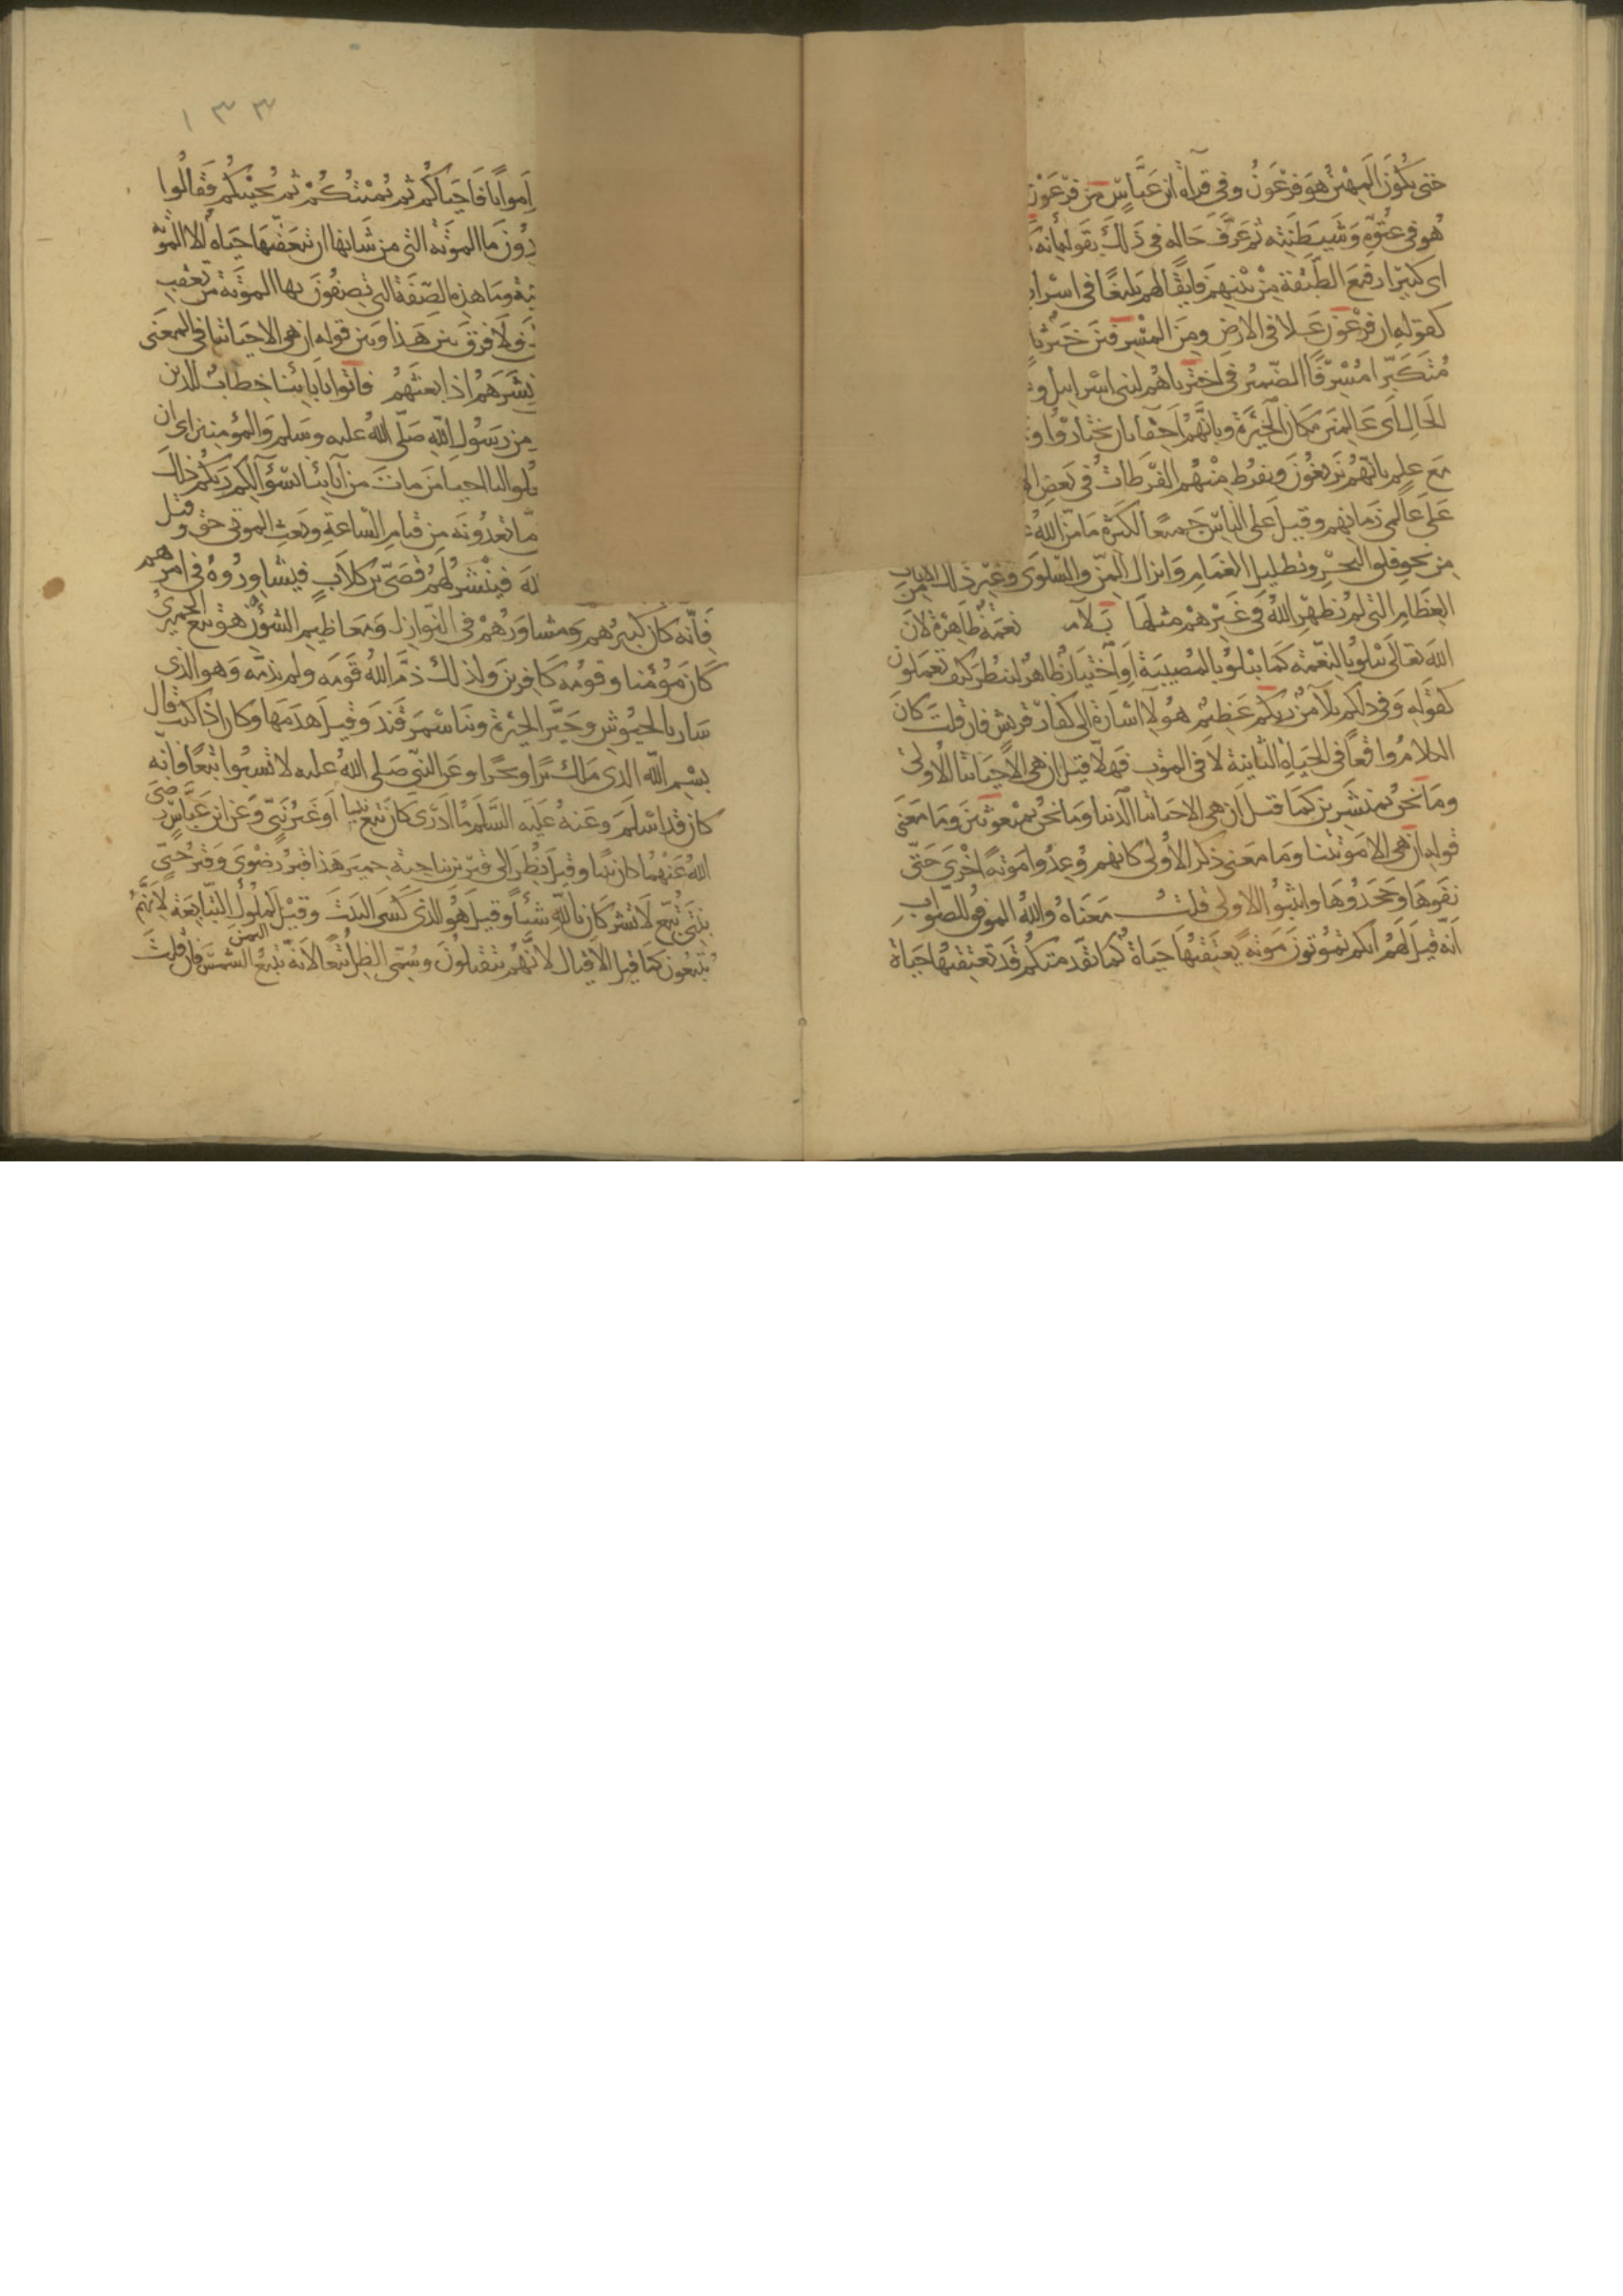 حتى يكون المهين هو فرعون وفي قرآة ابن عباس من فرعون
هو في عتوه وشيطنته ثم عرف حاله في ذلك بقوله انه
اى كبيرا رفيع الطبقة من بينهم فايقا لهم بليغا في اسرا
كقوله ان فرعون علا في الارض ومن المسرفين خبر ثا
متكبرا مسرفا الضمير في اخترناهم لبنى اسرايل و
الحال اى عالمين بمكان الخيرة وبانهم احقا بان يختاروا و
مع علم بانهم يزيغون ويفرط منهم الفرطات في بعض ال
على عالمي زمانهم وقيل على الناس جميعا لكثرة ما من الله
من نحو فلق البحر وتظليل الغمام وانزال المن والسلوى وغير ذلك من
العظام التي لم يظهر الله في غيرهم مثلها بلآء نعمة ظاهرة لان
الله تعالى يبلو بالنعمة كما يبلو بالمصيبة او اختبار ظاهر لننظر كيف تعملون
كقوله وفي ذلكم بلآ من ربكم عظيم هولآ اشارة الى كفار قريش فان قلت كان
الكلام واقعا في الحياة الثانية لا في الموت فهلا قيل ان هي الا حياتنا الاولى
وما نحن بمنشرين كما قيل ان هي الا حياتنا الدنيا وما نحن بمبعوثين وما معنى
قوله ان هي الا موتتنا وما معنى ذكر الاولى كانهم وعدوا موتة اخرى حتى
نفوها وجحدوها واثبتوا الاولى قلت معناه والله الموفق للصواب
انه قيل لهم انكم تموتون موتة يعتقبها حياة كما تقدمتكم قد تعتقبها حياة
١٣٣
امواتا فاحياكم ثم يميتكم ثم يحييكم فقالوا
دون ما الموتة التى من شانها ان تتعقبها حياه الا الموتة
تية وما هذه الصفة التي تصفون بها الموتة من تعقب
ولا فرق بين هذا وبين قوله ان هي الا حياتنا في المعنى
نشرهم اذا بعثهم فاتوا بابائنا خطاب للذين
من رسول الله صلى الله عليه وسلم والمومنين اى ان
لوا لنا احيا من مات من آبائنا بسؤآلكم ربكم ذلك
ما تعدونه من قيام الساعة وبعث الموتى حق وقيل
له فينشر لهم قصى بن كلاب فيشاوروه في امرهم
فانه كان كبيرهم ومشاورهم في النوازل ومعاظيم الشؤن هو تبع الحميرى
كان مؤمنا وقومه كافرين ولذلك ذم الله قومه ولم يذمه وهو الذي
سار بالجيوش وحير الحيرة وبنا سمرقند وقيل هدمها وكان اذا كتب قال
بسم الله الذى ملك برا وبحرا وعن النبى صلى الله عليه لا تسبوا تبعا فانه
كان قد اسلم وعنه عليه السلم ما ادرى كان تبع نبيا او غير نبي وعن ابن عباس رضى
الله عنهما كان نبيا وقيل نظر الى قبرين بناحية حمير هذا قبر رضوى وقبر حبى
بنتى تبع لا تشركان بالله شيئا وقيل هو الذى كسى البيت وقيل لملوك اليمن التبابعة لانهم
يتبعون كما قيل الاقيال لانهم يتقيلون وسمى الظل تبعا لانه يتبع الشمس فان قلت